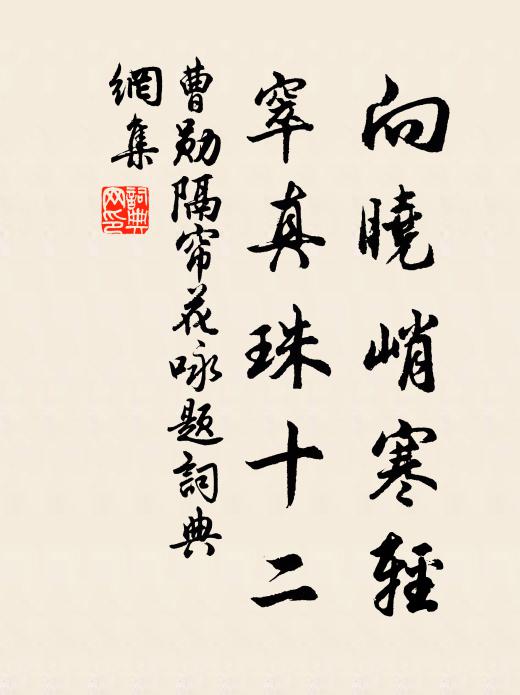 向曉峭寒輕
窣真珠十二
曹勛隔帘花咏題詞典
網集
詞典
网印